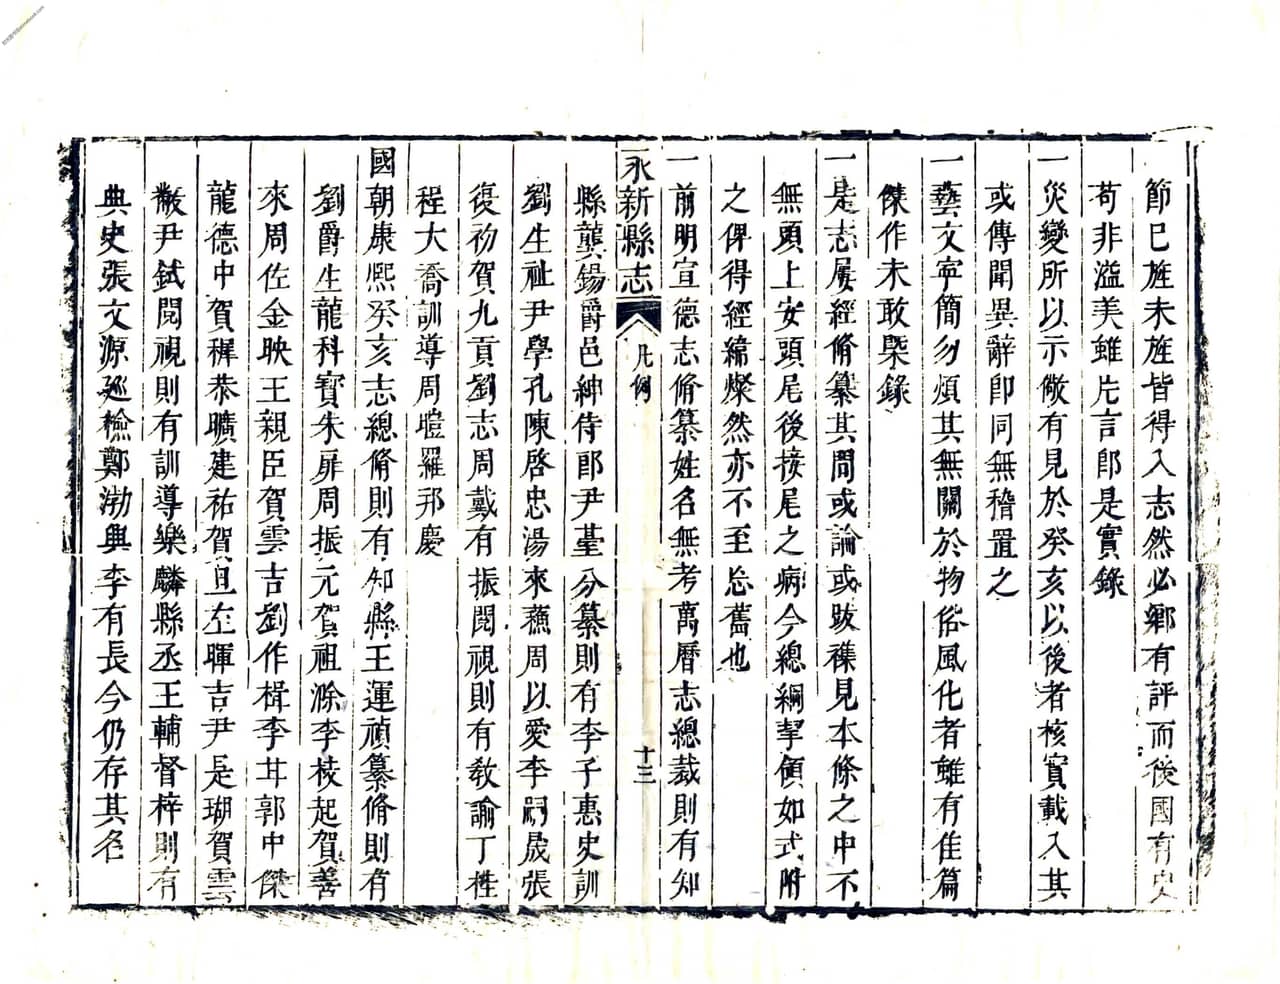 節已旌未旌皆得入志然必鄉有評而後國有史
苟非溢美雖片言卽是實錄
一災變所以示儆有見於癸亥以後者核實載入其
或傳聞異辭卽同無稽置之
一藝文寜簡勿煩其無關於物俗風化者雖有佳篇
傑作未敢槩錄
一是志屢經脩纂其間或論或跋襍見本條之中不
無頭上安頭尾後接尾之病今總綱挈領如式附
之俾得經緯燦然亦不至忘舊也
一前明宣德志脩纂姓名無考萬曆志總裁則有知
永新縣志
凡例
十三
縣龔錫爵邑紳侍郎尹臺分纂則有李子惠史訓
劉生祉尹學孔陳啓忠湯來蘓周以愛李嗣晟張
復初賀九貢劉志周戴有振閱視則有敎諭丁桂
程大喬訓導周暟羅邦慶
國朝康熙癸亥志總脩則有知縣王運禎纂脩則有
劉爵生龍科寳朱扉周振元賀祖滁李棱起賀善
來周佐金映王親臣賀雲吉劉作楫李廾郭中傑
龍德中賀穉恭曠建祐賀且左暉吉尹是瑚賀雲
黻尹鉽閱視則有訓導樂麟縣丞王輔督梓則有
典史張文源廵檢鄭渤興李有長今仍存其名